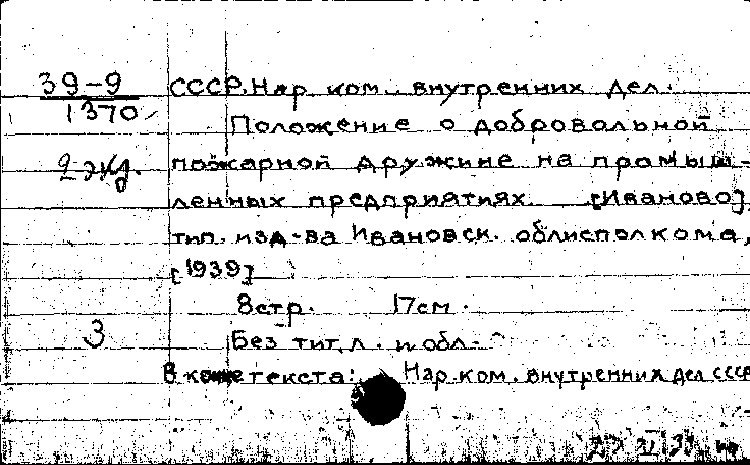 39-9
1370
СССР. Нар. ком. внутренних дел.
Положение о добровольной
2 экз.
пожарной дружине на промыш-
ленных предприятиях. [Иваново]
тип. изд-ва Ивановск. облисполкома,
[1939]
8 стр. 17 см.
3
Без тит. л. и обл.
В конце текста: Нар. ком. внутренних дел СССР